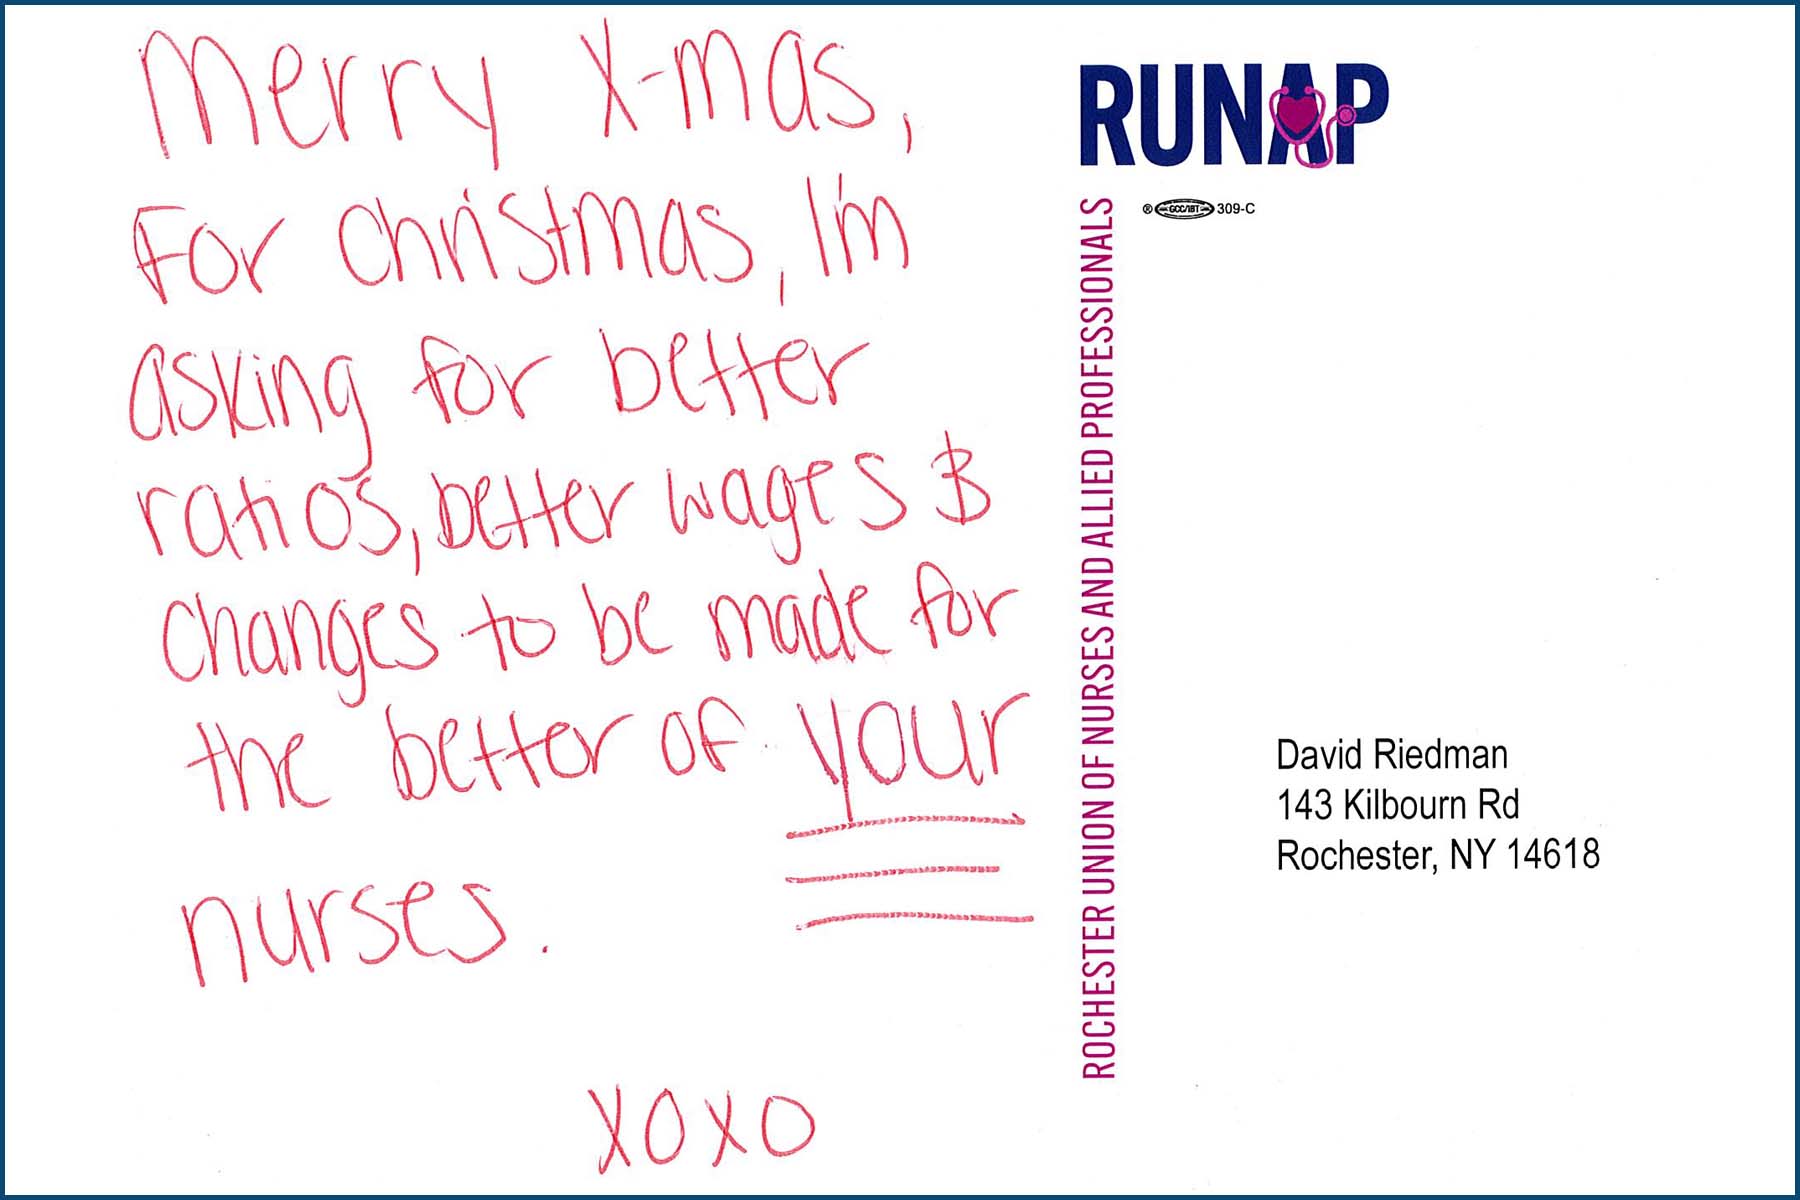 Merry X-mas,
For Christmas, I'm
asking for better
ratios, better wages &
changes to be made for
the better of your
nurses.
XOXO
RUNAP
® GCC/IBT 309-C
ROCHESTER UNION OF NURSES AND ALLIED PROFESSIONALS
David Riedman
143 Kilbourn Rd
Rochester, NY 14618